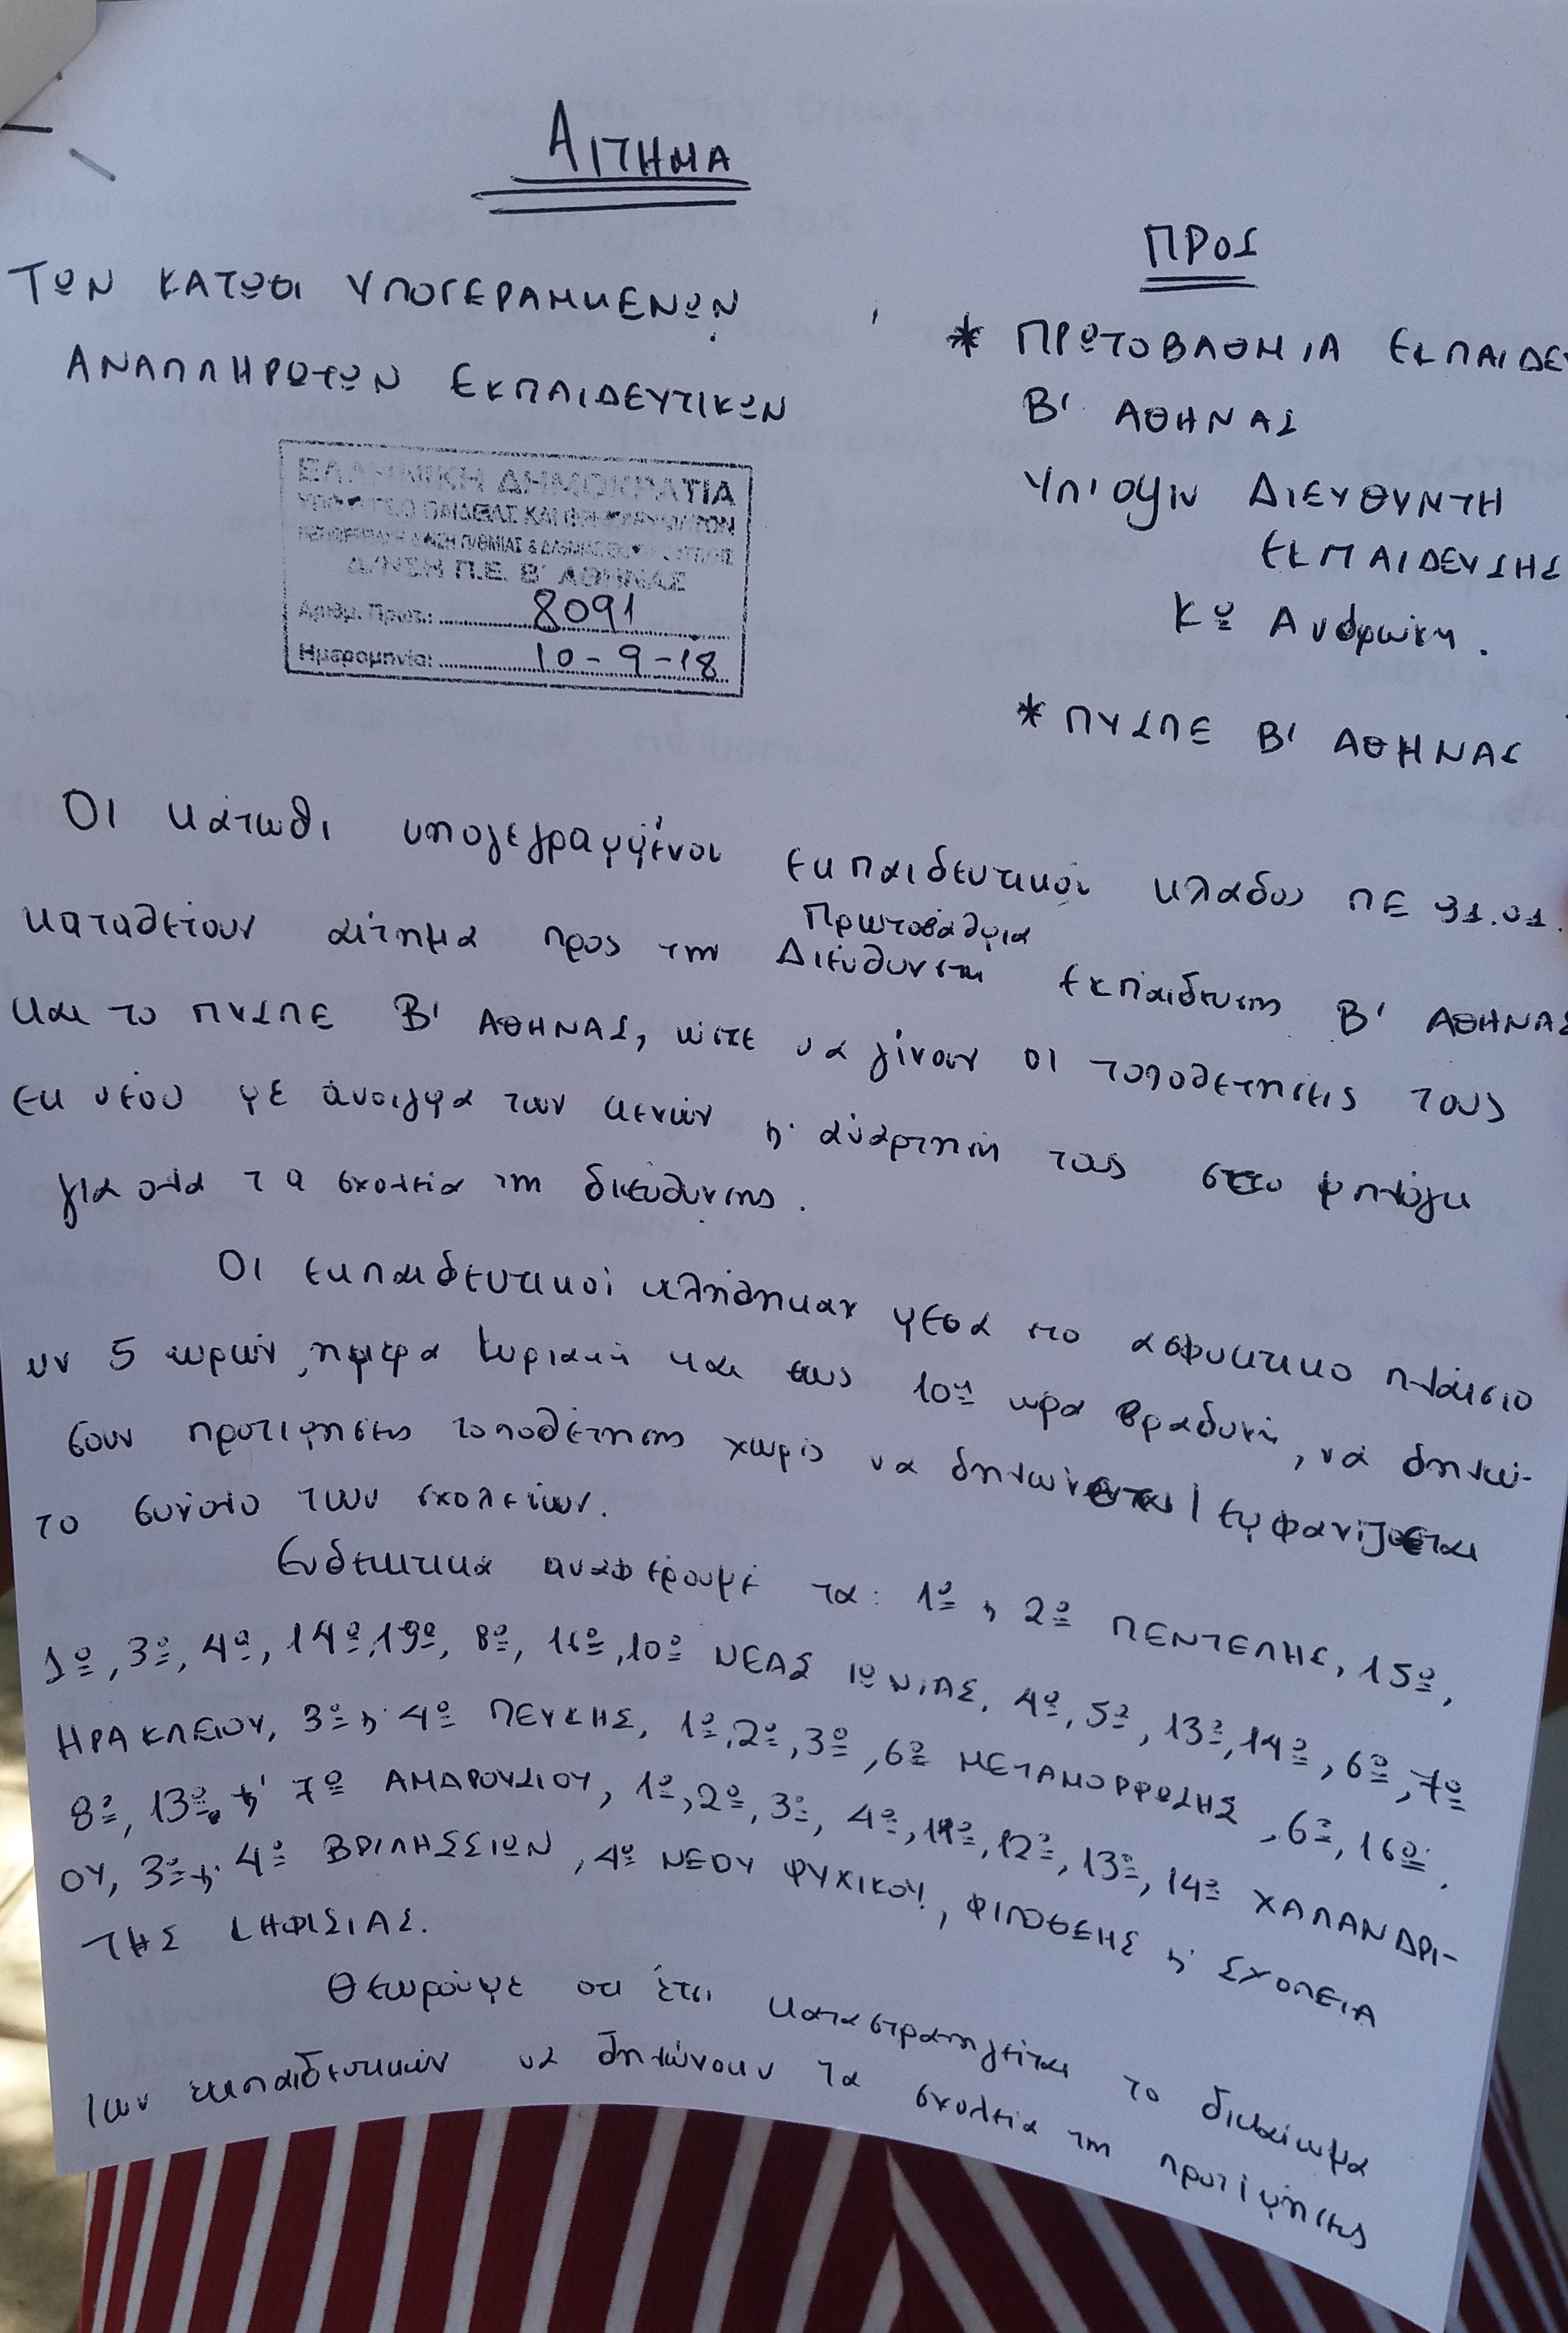 ΑΙΤΗΜΑ
ΤΩΝ ΚΑΤΩΘΙ ΥΠΟΓΕΡΑΜΜΕΝΩΝ
ΑΝΑΠΛΗΡΩΤΩΝ ΕΚΠΑΙΔΕΥΤΙΚΩΝ
ΕΛΛΗΝΙΚΗ ΔΗΜΟΚΡΑΤΙΑ
ΥΠΟΥΡΓΕΙΟ ΠΑΙΔΕΙΑΣ ΚΑΙ ΘΡΗΣΚΕΥΜΑΤΩΝ
Δ/ΝΣΗ Π.Ε. Β' ΑΘΗΝΑΣ
Αριθμ. Πρωτ.: 8091
Ημερομηνία: 10-9-18
ΠΡΟΣ
* ΠΡΩΤΟΒΑΘΜΙΑ ΕΚΠΑΙΔΕΥ
Β' ΑΘΗΝΑΣ
Υπ' οψιν ΔΙΕΥΘΥΝΤΗ
ΕΚΠΑΙΔΕΥΣΗΣ
Κο
* ΠΥΣΠΕ Β' ΑΘΗΝΑΣ
Οι κάτωθι υπογεγραμμένοι εκπαιδευτικοί κλάδου ΠΕ 91.01.
καταθέτουν αίτημα προς την Πρωτοβάθμια Διεύθυνση Εκπαίδευσης Β' ΑΘΗΝΑΣ
και το ΠΥΣΠΕ Β' ΑΘΗΝΑΣ, ώστε να γίνουν οι τοποθετήσεις τους
εκ νέου με άνοιγμα των κενών ή ανάρτηση τους στο
για όλα τα σχολεία της διεύθυνσης.
Οι εκπαιδευτικοί κλήθηκαν μέσα στο ασφυκτικό πλάισιο
ων 5 ωρών, ημέρα Κυριακή και εως 10η ωρα βραδυνή, νά δηλώ-
σουν προτιμήσεις τοποθέτησης χωρίς να δηλώνεται / εμφανίζεται
το σύνολο των σχολείων.
Ενδεικτικά αναφέρουμε τα: 1ο ή 2ο ΠΕΝΤΕΛΗΣ, 15ο,
1ο, 3ο, 4ο, 14ο, 19ο, 8ο, 16ο, 10ο ΝΕΑΣ ΙΩΝΙΑΣ, 4ο, 5ο, 13ο, 14ο, 6ο, 7ο
ΗΡΑΚΛΕΙΟΥ, 3ο ή 4ο ΠΕΥΚΗΣ, 1ο, 2ο, 3ο, 6ο ΜΕΤΑΜΟΡΦΩΣΗΣ, 6ο, 16ο,
8ο, 13ο ή 7ο ΑΜΑΡΟΥΣΙΟΥ, 1ο, 2ο, 3ο, 4ο, 11ο, 12ο, 13ο, 14ο ΧΑΛΑΝΔΡΙ-
ΟΥ, 3ο ή 4ο ΒΡΙΛΗΣΣΙΩΝ, 4ο ΝΕΟΥ ΨΥΧΙΚΟΥ, ΦΙΛΟΘΕΗΣ ή ΣΧΟΛΕΙΑ
ΤΗΣ ΚΗΦΙΣΙΑΣ.
Θεωρούμε οτι έτσι καταστρατηγείται το δικαίωμα
των εκπαιδευτικών να δηλώνουν τα σχολεία της προτίμησης